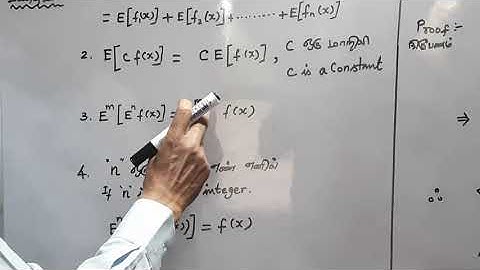 = E[f₁(x)] + E[f₂(x)] + ........ + E[fₙ(x)]
2. E[c f(x)] = C E[f(x)], C ஒரு மாறிலி
C is a Constant
3. Eᵐ[Eⁿ f(x)] = f(x)
4. "n" எண் எனில்
If 'n' integer.
Eⁿ )] = f(x)
Proof :-
நிரூபணம்
⇒
∴